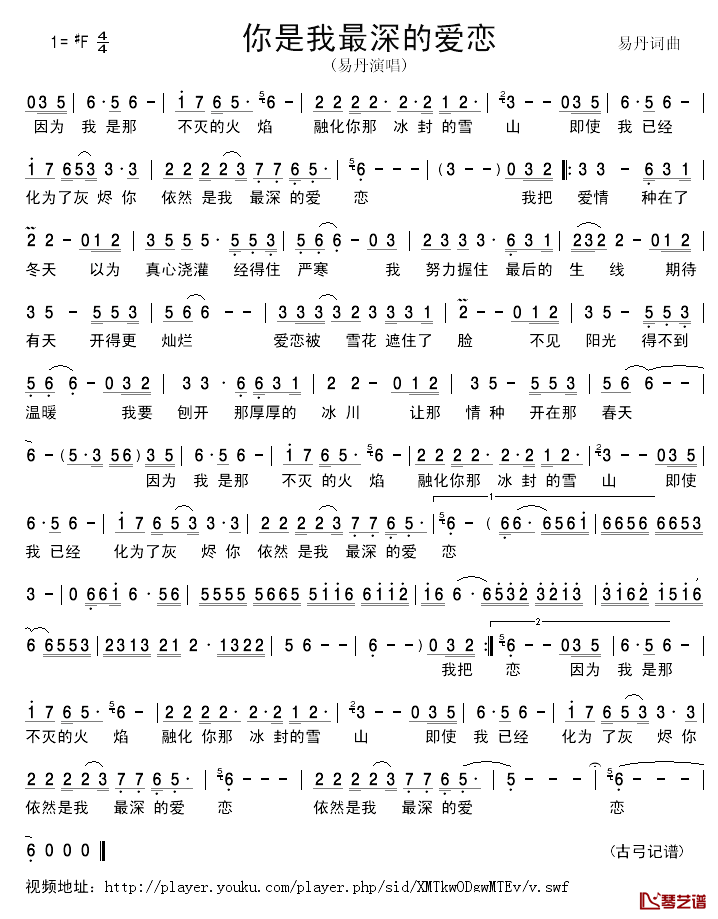 你是我最深的爱恋
1= #F 4/4
易丹词曲
(易丹演唱)
0 3 5 | 6· 5 6 - | i 7 6 5· 5 6 - | 2 2 2 2· 2· 2 1 2 | 2 3 - - 0 3 5 | 6· 5 6 - |
因为 我 是那 不灭的火 焰 融化你那 冰 封 的雪 山 即使 我 已经
i 7 6 5 3 3· 3 | 2 2 2 2 3 7 7 6 5· | 5 6 - - - | (3 - -) 0 3 2 |: 3 3 - 6 3 1 |
化为了灰 烬 你 依然 是我 最深 的爱 恋 我把 爱情 种在了
2 2 - 0 1 2 | 3 5 5 5· 5 5 3 | 5 6 6 - 0 3 | 2 2 2 3· 6 3 1 | 2 3 2 2 - 0 1 2 |
冬天 以为 真心浇灌 经得住 严寒 我 努力握住 最后的 生 线 期待
3 5 - 5 5 3 | 5 6 6 - - | 3 3 3 3 3 3 3 1 | 2 - - 0 1 2 | 3 5 - 5 5 3 |
有天 开得更 灿烂 爱恋被 雪花 遮住了 脸 不见 阳光 得不到
5 6 6 - 0 3 2 | 3 3· 6 6 3 1 | 2 2 - 0 1 2 | 3 5 - 5 5 3 | 5 6 6 - - |
温暖 我要 刨开 那厚厚的 冰川 让那 情种 开在那 春天
6 - (5· 3 5 6) 3 5 | 6· 5 6 - | i 7 6 5· 5 6 - | 2 2 2 2· 2· 2 1 2 | 2 3 - - 0 3 5 |
因为 我 是那 不灭的火 焰 融化你那 冰 封 的雪 山 即使
1
6· 5 6 - | i 7 6 5 3 3· 3 | 2 2 2 2 3 7 7 6 5· | 5 6 - ( 6 6· 6 5 6 i | 6 6 5 6 6 6 5 3
我 已经 化为了灰 烬 你 依然 是我 最深 的爱 恋
3 - | 0 6 6 i 6· 5 6 | 5 5 5 5 5 6 6 5 5 i i 6 6 i i 2 | i 6 6· 6 5 3 2 3 2 1 3 | 3 i 6 2 1 5 i 6
2
6 6 5 5 3 | 2 3 1 3 2 1 2· 1 3 2 2 | 5 6 - - | 6 - -) 0 3 2 :| 5 6 - - 0 3 5 | 6· 5 6 - |
我把 恋 因为 我 是那
i 7 6 5· 5 6 - | 2 2 2 2· 2· 2 1 2 | 2 3 - - 0 3 5 | 6· 5 6 - | i 7 6 5 3 3· 3 |
不灭的火 焰 融化你那 冰 封的雪 山 即使 我 已经 化为 了灰 烬 你
2 2 2 2 3 7 7 6 5· | 5 6 - - - | 2 2 2 2 3 7 7 6 5· | 5 - - - | 5 6 - - - |
依然是我 最深 的爱 恋 依然是我 最深 的爱 恋
6 0 0 0 ‖
(古弓记谱)
视频地址：http://player.youku.com/player.php/sid/XMTkwODgwMTEv/v.swf
琴艺谱